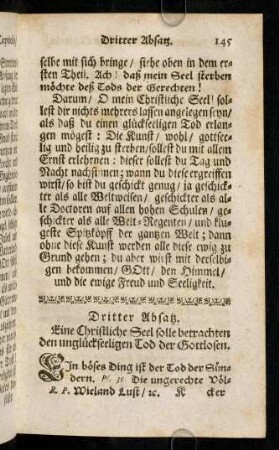 Dritter Absatz. 145
selbe mit sich bringe/ siehe oben in dem er-
sten Theil. Ach! daß mein Seel sterben
möchte deß Tods der Gerechten!
Darum/ O mein Christliche Seel! sol-
lest dir nichts mehrers lassen angelegen seyn/
als daß du einen glückseeligen Tod erlan-
gen mögest: Die Kunst/ wohl/ gottsee-
lig und heilig zu sterben/ sollest du mit allem
Ernst erlehrnen: dieser sollest du Tag und
Nacht nachsinnen; wann du diese ergreiffen
wirst/ so bist du geschickt genug/ ja geschick-
ter als alle Weltweisen/ geschickter als al-
le Doctoren auf allen hohen Schulen/ ge-
schickter als alle Welt-Regenten/ und klu-
geste Spitzköpff der gantzen Welt; dann
ohne diese Kunst werden alle diese ewig zu
Grund gehen; du aber wirst mit derselbi-
gen bekommen/ GOtt/ den Himmel/
und die ewige Freud und Seeligkeit.
Dritter Absatz.
Eine Christliche Seel solle betrachten
den unglückseeligen Tod der Gottlosen.
EIn böses Ding ist der Tod der Sün-
dern. Die ungerechte Völ-
R. P. Wieland Lust/ ꝛc. K cker